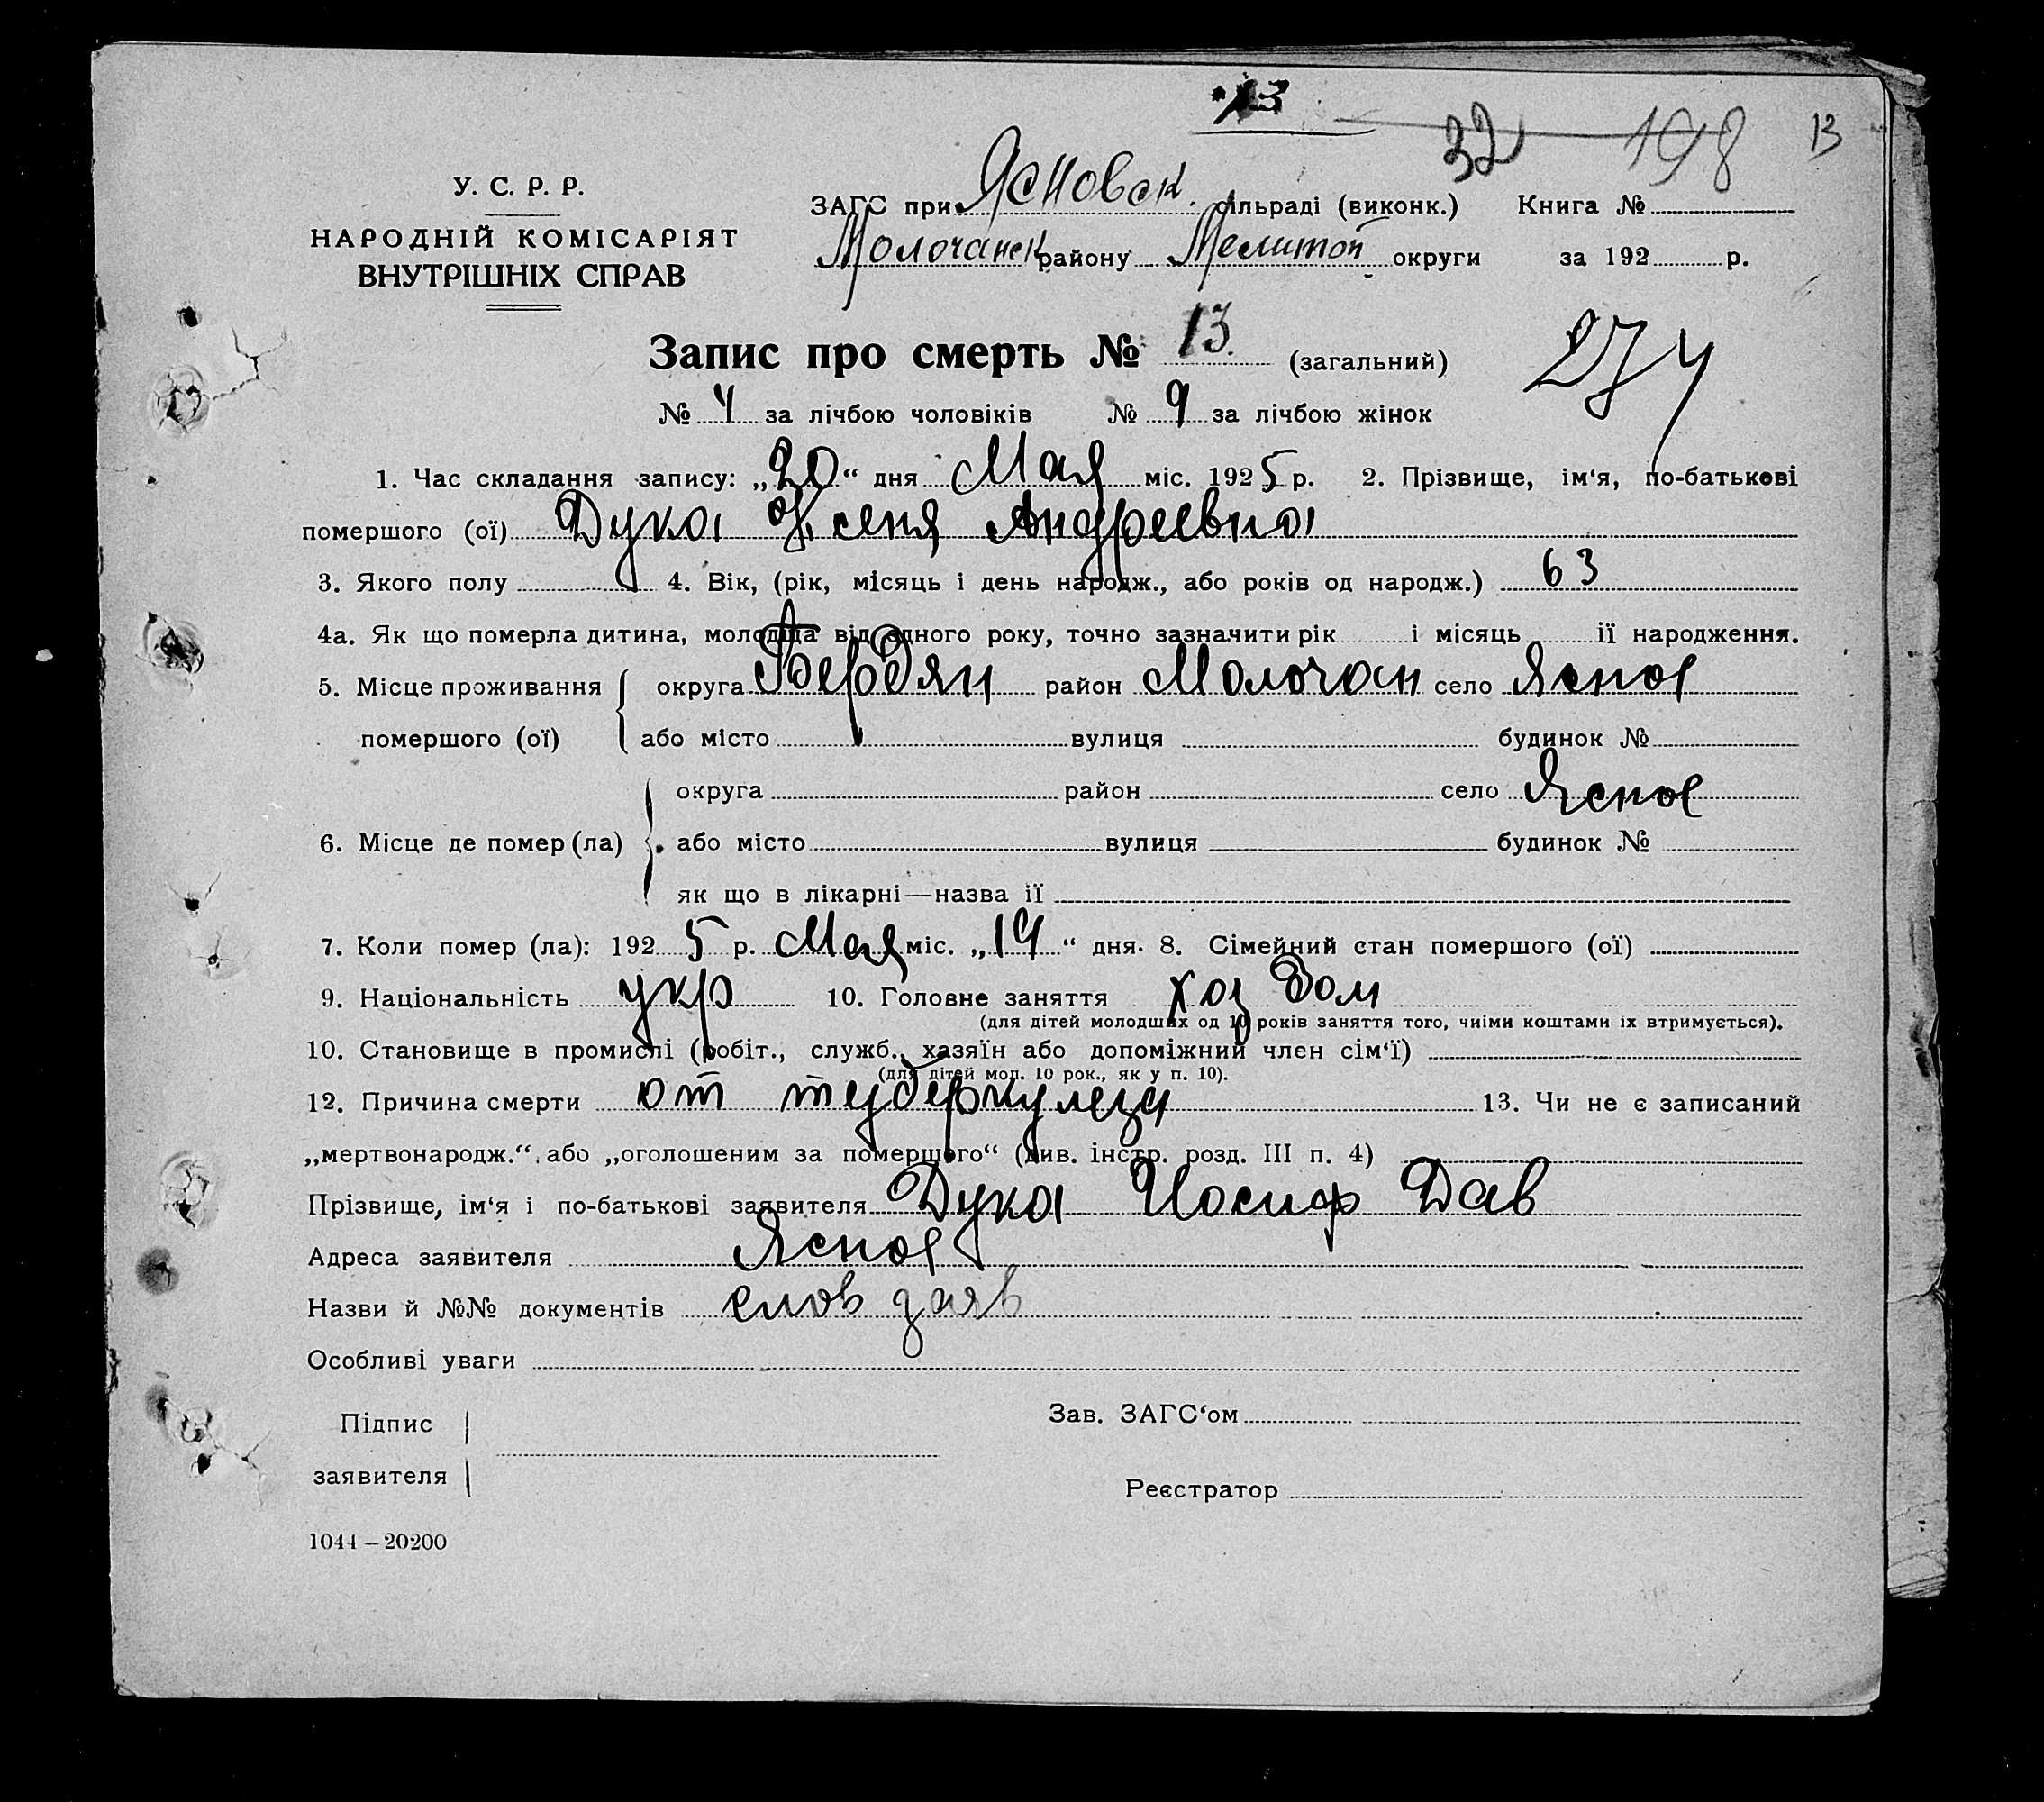 13
32 198 13
У. С. Р. Р.
НАРОДНІЙ КОМІСАРІЯТ
ВНУТРІШНІХ СПРАВ
ЗАГС при Ясновск. сільраді (виконк.) Книга №
Молочанск району Мелитоп округи за 192 р.
Запис про смерть № 13. (загальний)
№ 4 за лічбою чоловіків № 9 за лічбою жінок
1. Час складання запису: „20“ дня Мая міс. 1925 р. 2. Прізвище, ім‘я, по-батькові
помершого (ої) Дука Ксеня Андреевна
3. Якого полу 4. Вік, (рік, місяць і день народж., або років од народж.) 63
4а. Як що померла дитина, молодша від одного року, точно зазначити рік і місяць її народження.
5. Місце проживання помершого (ої) округа Бердян район Молочан село Ясное
або місто вулиця будинок №
6. Місце де помер (ла) округа район село Ясное
або місто вулиця будинок №
як що в лікарні—назва її
7. Коли помер (ла): 1925 р. Мая міс. „19“ дня. 8. Сімейний стан помершого (ої)
9. Національність укр 10. Головне заняття хоз дом
(для дітей молодших од 10 років заняття того, чиїми коштами їх втримується).
10. Становище в промислі (робіт., служб., хазяїн або допоміжний член сім‘ї)
(для дітей мол. 10 рок., як у п. 10).
12. Причина смерти от туберкулеза 13. Чи не є записаний
„мертвонародж.“ або „оголошеним за помершого“ (див. інстр. розд. III п. 4)
Прізвище, ім‘я і по-батькові заявителя Дука Иосиф Дав
Адреса заявителя Ясное
Назви й №№ документів слов заяв
Особливі уваги
Підпис
заявителя
Зав. ЗАГС‘ом
Реєстратор
1044 – 20200